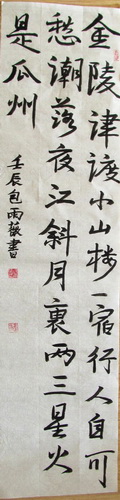 金陵津渡小山楼一宿行人自可
愁潮落夜江斜月裏两三星火
是瓜州
壬辰包雨薇書